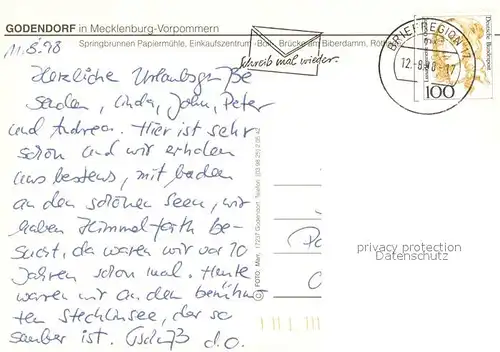 GODENDORF in Mecklenburg-Vorpommern
Springbrunnen Papiermühle, Einkaufszentrum Brücke am Biberdamm,
11.8.98
Schreib mal wieder.
BRIEFREGION 17
12.-8.98-17
Deutsche Bundespost
100
Herzliche Urlaubsgrüße
senden, Linda, John, Peter
und Andrea. Hier ist sehr
schön und wir erholen
uns bestens, mit baden
an den schönen Seen, wir
haben Himmelpforth be-
sucht, da waren wir vor 10
Jahren schon mal. Heute
waren wir an den berühm-
ten Stechlinsee, der so
sauber ist. Gruß d.O.
© FOTO: Mien, 17237 Godendorf, Telefon
privacy protection
Datenschutz